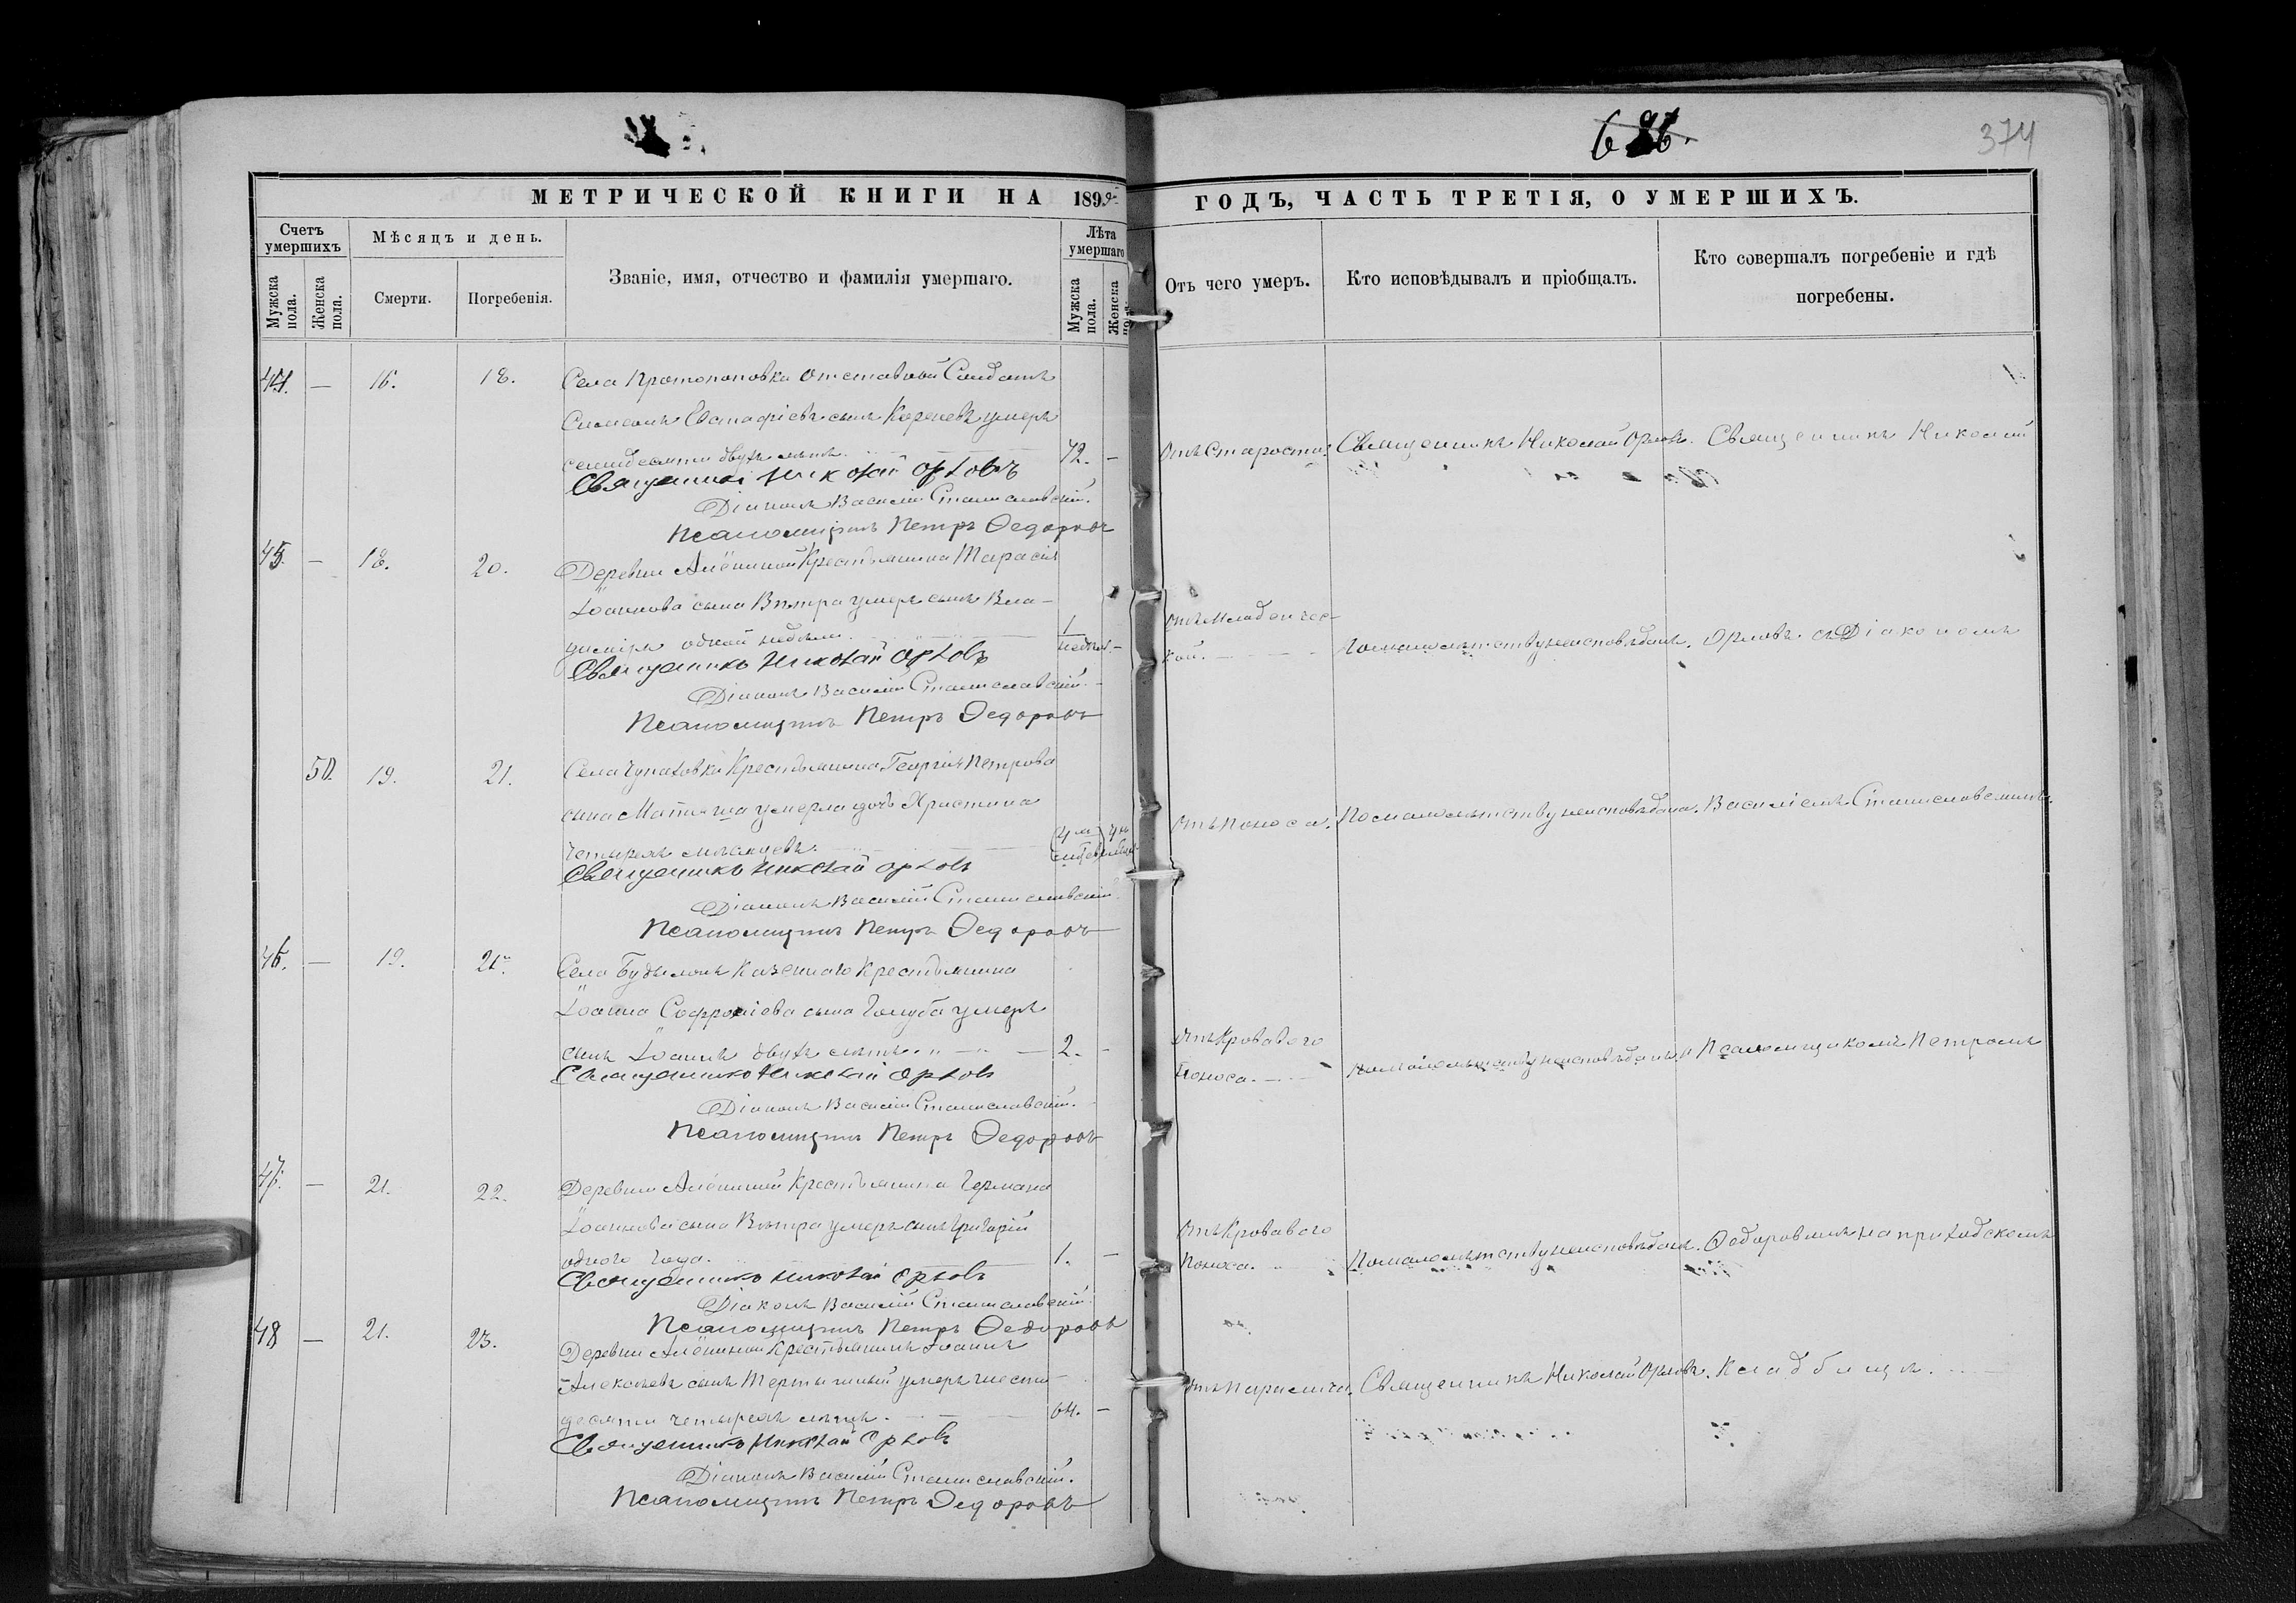 374
МЕТРИЧЕСКОЙ КНИГИ НА 1899 ГОДЪ, ЧАСТЬ ТРЕТІЯ, О УМЕРШИХЪ.
Счетъ умершихъ
Мѣсяцъ и день.
Званіе, имя, отчество и фамилія умершаго.
Лѣта умершаго
Отъ чего умеръ.
Кто исповѣдывалъ и пріобщалъ.
Кто совершалъ погребеніе и гдѣ погребены.
Мужска пола.
Женска пола.
Смерти.
Погребенія.
Мужска пола.
Женска пола.
44. — 16. 18. Села Протопоповки Отставной Солдатъ
Симеонъ Евстафіевъ сынъ Кореневъ умеръ
семидесяти двухъ лѣтъ. 72. — Отъ Старости. Священникъ Николай Орловъ. Священникъ Николай
Священникъ Николай Орловъ
Діаконъ Василій Станиславскій.
Псаломщикъ Петръ Ѳедоровъ
45. — 18. 20. Деревни Алёшиной Крестьянина Тарасія
Іоаннова сына Вѣтра умеръ сынъ Вла-
диміръ одной недѣли. 1 недѣл. — Отъ Младенчес-
кой. По малолѣтству неисповѣданъ. Орловъ съ Діакономъ
Священникъ Николай Орловъ
Діаконъ Василій Станиславскій.
Псаломщикъ Петръ Ѳедоровъ
50. 19. 21. Села Чупаховки Крестьянина Георгія Петрова
сына Матяша умерла дочь Христина
четырехъ мѣсяцевъ. Отъ Поноса. По малолѣтству неисповѣдана. Василіемъ Станиславскимъ
Священникъ Николай Орловъ
Діаконъ Василій Станиславскій
Псаломщикъ Петръ Ѳедоровъ
46. — 19. 21. Села Будылокъ Казеннаго Крестьянина
Іоанна Софроніева сына Голуба умеръ
сынъ Іоаннъ двухъ лѣтъ. 2. — Отъ Кроваваго
Поноса. По малолѣтству неисповѣданъ. и Псаломщикомъ Петромъ
Священникъ Николай Орловъ
Діаконъ Василій Станиславскій.
Псаломщикъ Петръ Ѳедоровъ
47. — 21. 22. Деревни Алёшиной Крестьянина Германа
Іоаннова сына Вѣтра умеръ сынъ Григорій
одного года. 1. — Отъ Кроваваго
Поноса. По малолѣтству неисповѣданъ. Ѳедоровымъ на приходскомъ
Священникъ Николай Орловъ
Діаконъ Василій Станиславскій.
Псаломщикъ Петръ Ѳедоровъ
48 — 21. 23. Деревни Алёшиной Крестьянинъ Іоаннъ
Алексѣевъ сынъ Терты умеръ шести-
десяти четырехъ лѣтъ. 64. — Отъ Паралича. Священникъ Николай Орловъ. Кладбищѣ.
Священникъ Николай Орловъ
Діаконъ Василій Станиславскій.
Псаломщикъ Петръ Ѳедоровъ